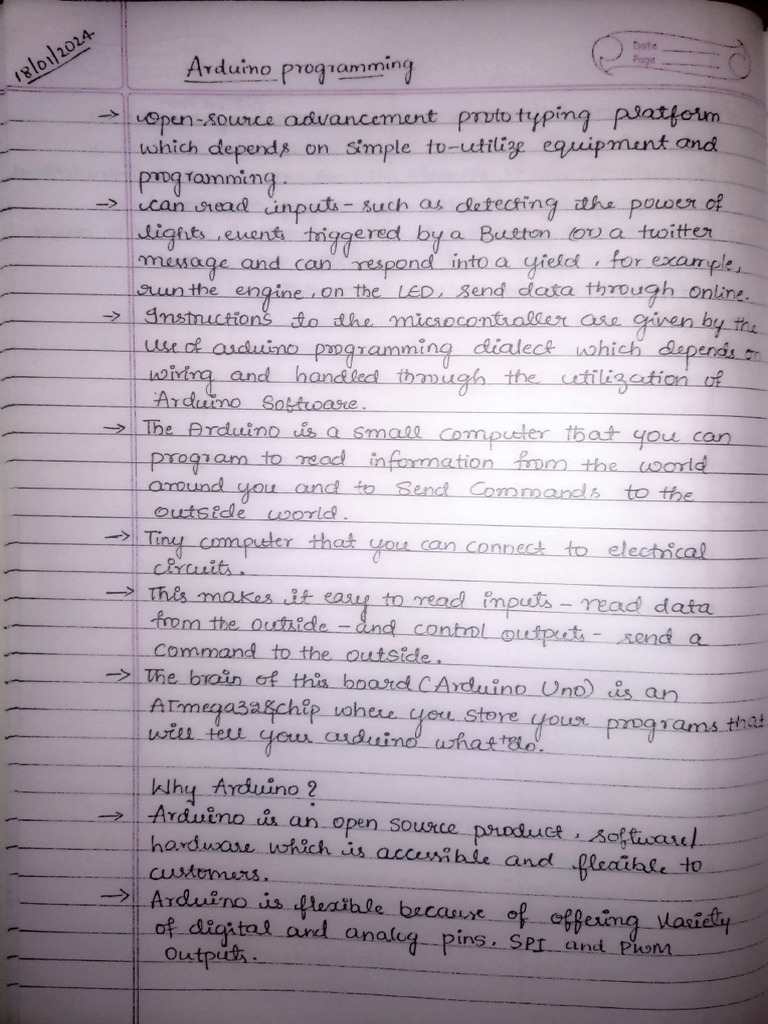 18/01/2024
Arduino programming
Date
Page
→ open-source advancement prototyping platform
which depends on simple to-utilize equipment and
programming.
→ can read inputs - such as detecting the power of
lights, events triggered by a Button (or) a twitter
message and can respond into a yield, for example,
run the engine, on the LED, send data through online.
→ Instructions to the microcontroller are given by the
use of arduino programming dialect which depends on
wiring and handled through the utilization of
Arduino Software.
→ The Arduino is a small computer that you can
program to read information from the world
around you and to Send Commands to the
outside world.
→ Tiny computer that you can connect to electrical
circuits.
→ This makes it easy to read inputs - read data
from the outside - and control outputs - send a
Command to the outside.
→ The brain of this board (Arduino Uno) is an
ATmega328chip where you store your programs that
will tell your arduino what to do.
Why Arduino?
→ Arduino is an open source product, software/
hardware which is accessible and flexible to
customers.
→ Arduino is flexible because of offering Variety
of digital and analog pins, SPI and PWM
Outputs.